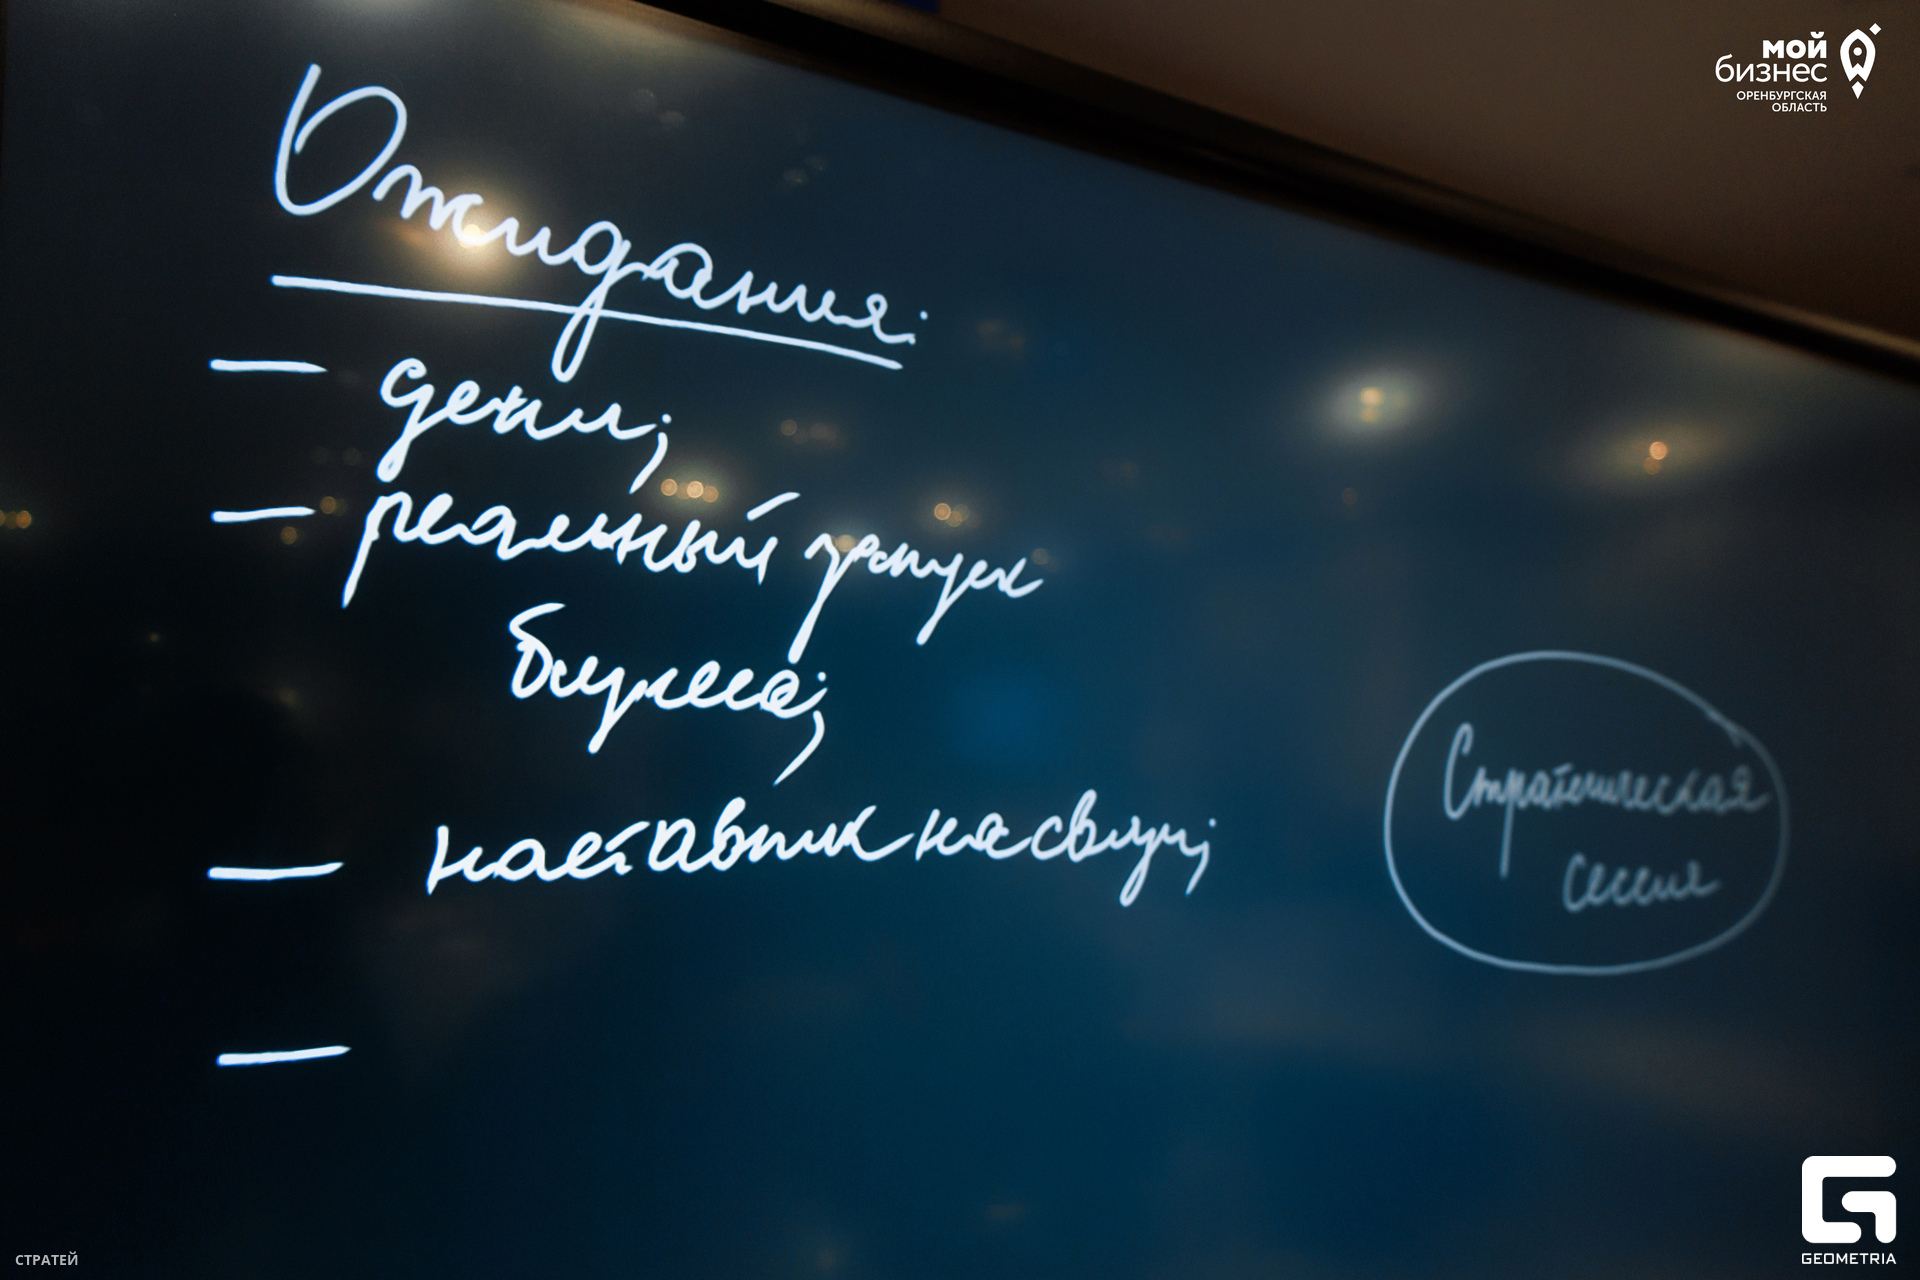 мой
бизнес
ОРЕНБУРГСКАЯ
ОБЛАСТЬ
Ожидания:
— день;
— реальный запуск
бизнеса;
— наставник на связи;
—
Стратегическая
сессия
GEOMETRIA
СТРАТЕЙ